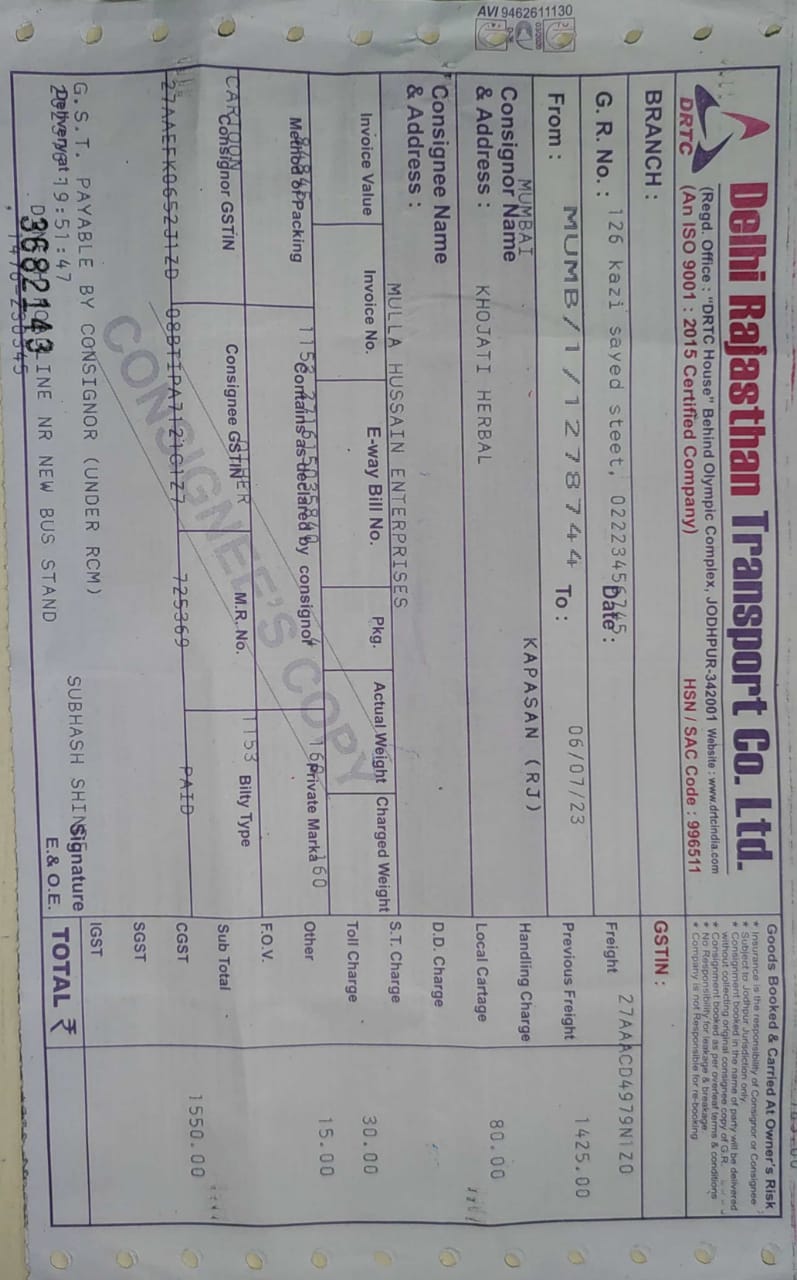 AVI 9462611130
Delhi Rajasthan Transport Co. Ltd.
DRTC
(Regd. Office : "DRTC House" Behind Olympic Complex, JODHPUR-342001 Website : www.drtcindia.com
(An ISO 9001 : 2015 Certified Company) HSN / SAC Code : 996511
Goods Booked & Carried At Owner's Risk
* Insurance is the responsibility of Consignor or Consignee
* Subject to Jodhpur Jurisdiction only.
* Consignment booked in the name of party will be delivered
without collecting original consignee copy of G.R.
* Consignment booked as per overleaf terms & conditions
* No Responsibility for leakage & breakage.
* Company is not Responsible for re-booking
BRANCH : GSTIN :
126 kazi sayed steet, 02223456745 27AAACD4979N1Z0
G. R. No. : Date : Freight
MUMB/1/1278744 06/07/23 1425.00
From : To : Previous Freight
MUMBAI KAPASAN (RJ)
Consignor Name Handling Charge
& Address : KHOJATI HERBAL Local Cartage 80.00
Consignee Name D.D. Charge
& Address : MULLA HUSSAIN ENTERPRISES S.T. Charge
Invoice Value Invoice No. E-way Bill No. Pkg. Actual Weight Charged Weight Toll Charge 30.00
84845 1153 160 160 15.00
Method of Packing Contains as declared by consignor Private Marka Other
F.O.V.
CARTOON 1153
Consignor GSTIN Consignee GSTIN M.R. No. Bilty Type Sub Total
27AAEFK0652J1ZD 08BTIPA7121C1Z7 725369 PAID CGST 1550.00
CONSIGNEE'S COPY
SGST
IGST
G.S.T. PAYABLE BY CONSIGNOR (UNDER RCM) SUBHASH SHIN
Signature
Delivery at : 19:51:47
E. & O.E. TOTAL ₹
INE NR NEW BUS STAND
3682143